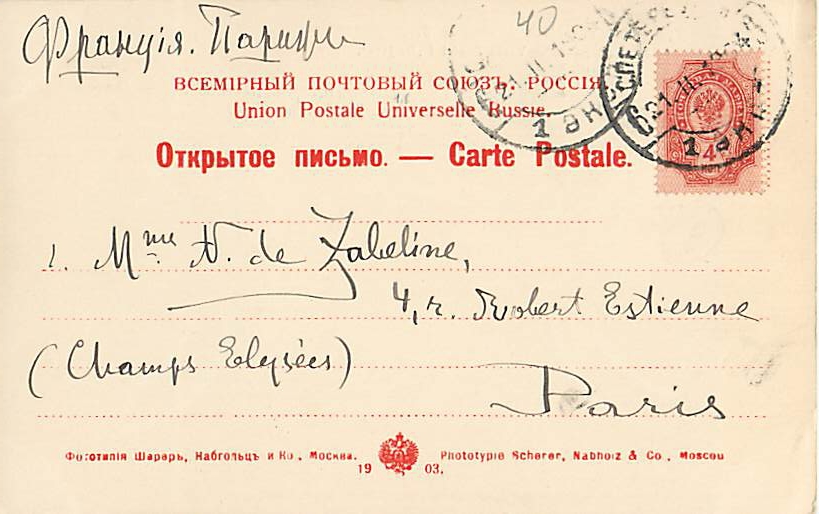 40
Франція. Парижъ
ВСЕМІРНЫЙ ПОЧТОВЫЙ СОЮЗЪ. РОССІЯ.
Union Postale Universelle Russie.
Открытое письмо. — Carte Postale.
1 ЭКСП
С.ПЕТЕРБ
21 III
4
Mme N. de Zabeline,
4, r. Robert Estienne
(Champs Elysées)
Paris
Фототипія Шереръ, Набгольцъ и Ко, Москва. 1903. Phototypie Scherer, Nabholz & Co, Moscou